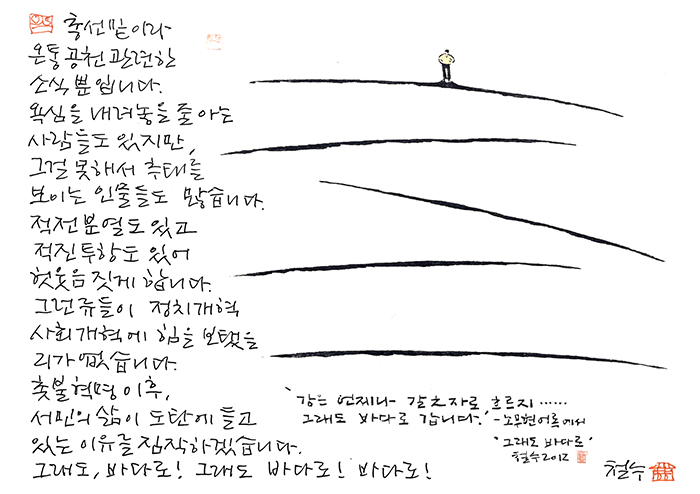 총선 밑이라
온통 공천 관련한
소식 뿐입니다.
욕심을 내려놓을 줄 아는
사람들도 있지만,
그걸 못해서 추태를
보이는 인물들도 많습니다.
적전분열도 있고
적진투항도 있어
헛웃음 짓게 합니다.
그런 류들이 정치개혁
사회개혁에 힘을 보탰을
리가 없습니다.
촛불혁명 이후,
서민의 삶이 도탄에 들고
있는 이유를 짐작하겠습니다.
그래도, 바다로! 그래도 바다로! 바다로!
'강은 언제나 갈 之 자로 흐르지 ......
그래도 바다로 갑니다.' -노무현어록에서
"그래도 바다로"
철수 2012
철수